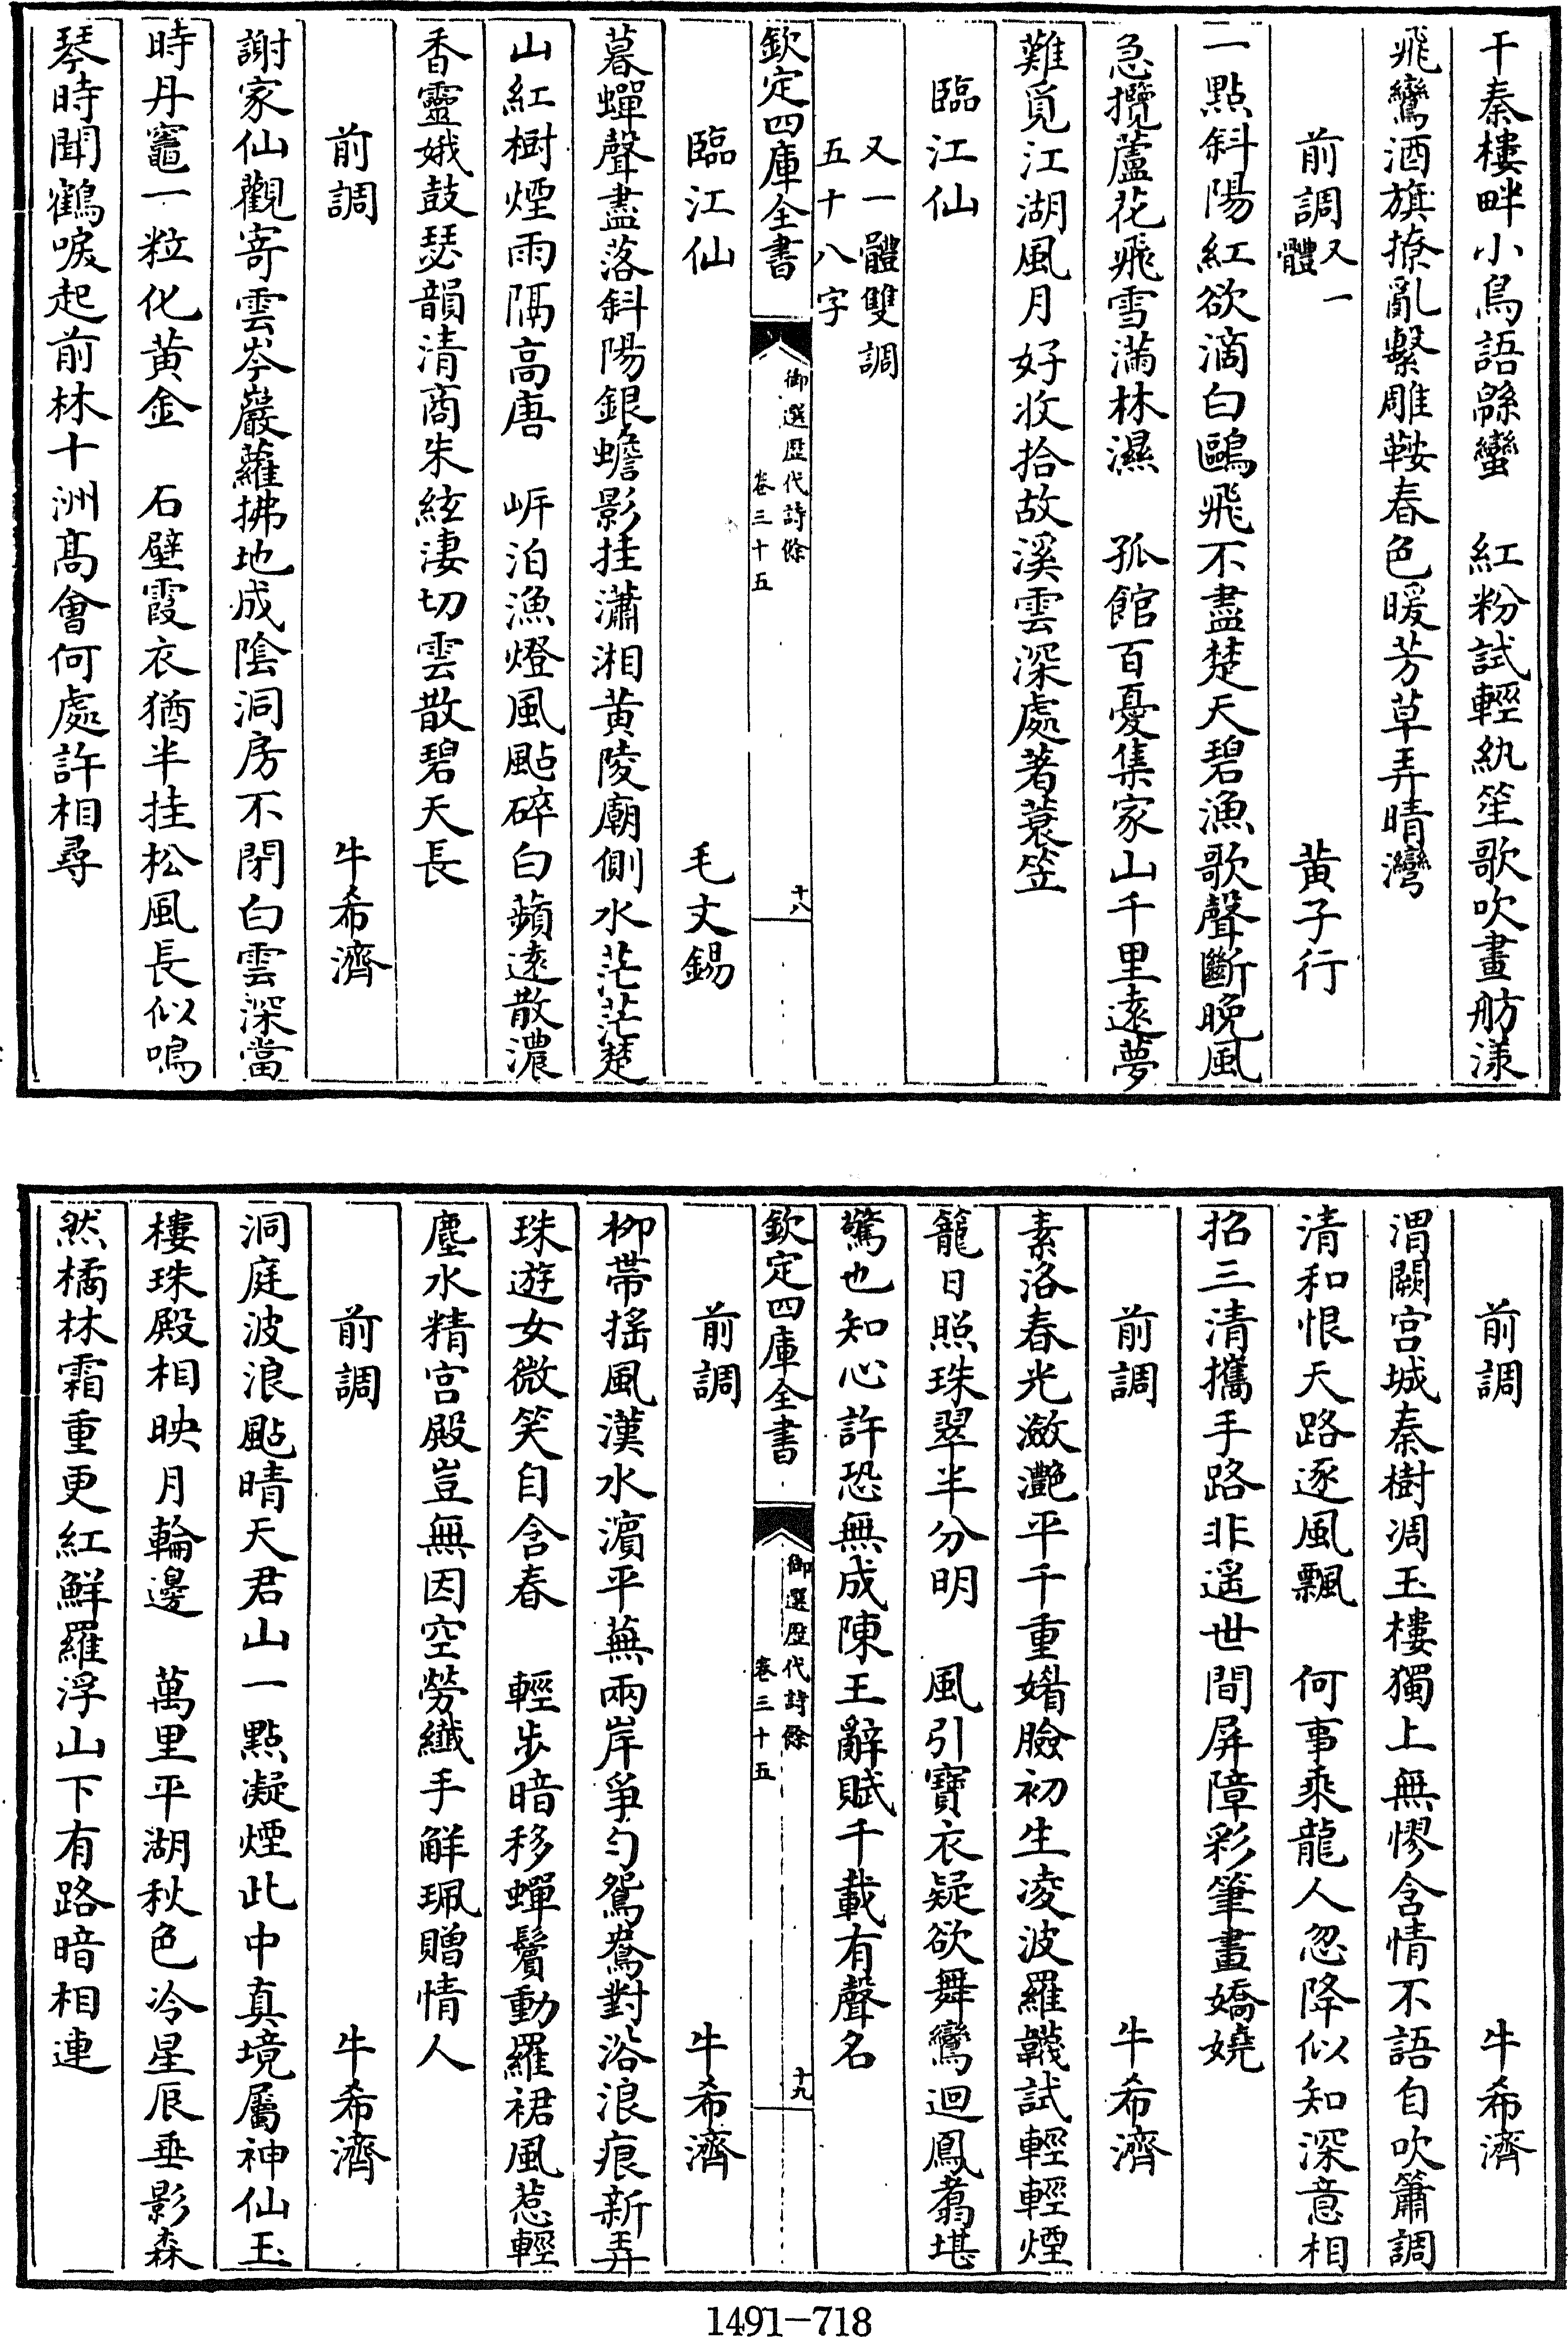 干秦樓畔小鳥語緜蠻　紅粉試輕紈笙歌吹畫舫漾
飛鸞酒旗撩亂繫雕鞍春色暖芳草弄晴灣
前調又一體　黃子行
一點斜陽紅欲滴白鷗飛不盡楚天碧漁歌聲斷晚風
急攪蘆花飛雪滿林濕　孤館百憂集家山千里遠夢
難覓江湖風月好收拾故溪雲深處著蓑笠
臨江仙
又一體雙調
五十八字
欽定四庫全書
御選歷代詩餘
卷三十五
十八
臨江仙　毛文錫
暮蟬聲盡落斜陽銀蟾影挂瀟湘黃陵廟側水茫茫楚
山紅樹煙雨隔高唐　岍泊漁燈風颭碎白蘋遠散濃
香靈娥鼓瑟韻清商朱絃淒切雲散碧天長
前調　牛希濟
謝家仙觀寄雲岑巖蘿拂地成陰洞房不閉白雲深當
時丹竈一粒化黃金　石壁霞衣猶半挂松風長似鳴
琴時聞鶴唳起前林十洲高會何處許相尋
前調　牛希濟
渭闕宮城秦樹凋玉樓獨上無憀含情不語自吹簫調
清和恨天路逐風飄　何事乘龍人忽降似知深意相
招三清攜手路非遙世間屏障彩筆畫嬌嬈
前調　牛希濟
素洛春光瀲灧平千重媚臉初生凌波羅韈試輕輕煙
籠日照珠翠半分明　風引寶衣疑欲舞鸞迴鳳翥堪
驚也知心許恐無成陳王辭賦千載有聲名
欽定四庫全書
御選歷代詩餘
卷三十五
十九
前調　牛希濟
柳帶搖風漢水濵平蕪兩岸爭勻鴛鴦對浴浪痕新弄
珠遊女微笑自含春　輕步暗移蟬鬢動羅裙風惹輕
塵水精宮殿豈無因空勞纖手解珮贈情人
前調　牛希濟
洞庭波浪颭晴天君山一點凝煙此中真境屬神仙玉
樓珠殿相映月輪邊　萬里平湖秋色冷星辰垂影森
然橘林霜重更紅鮮羅浮山下有路暗相連
1491—718